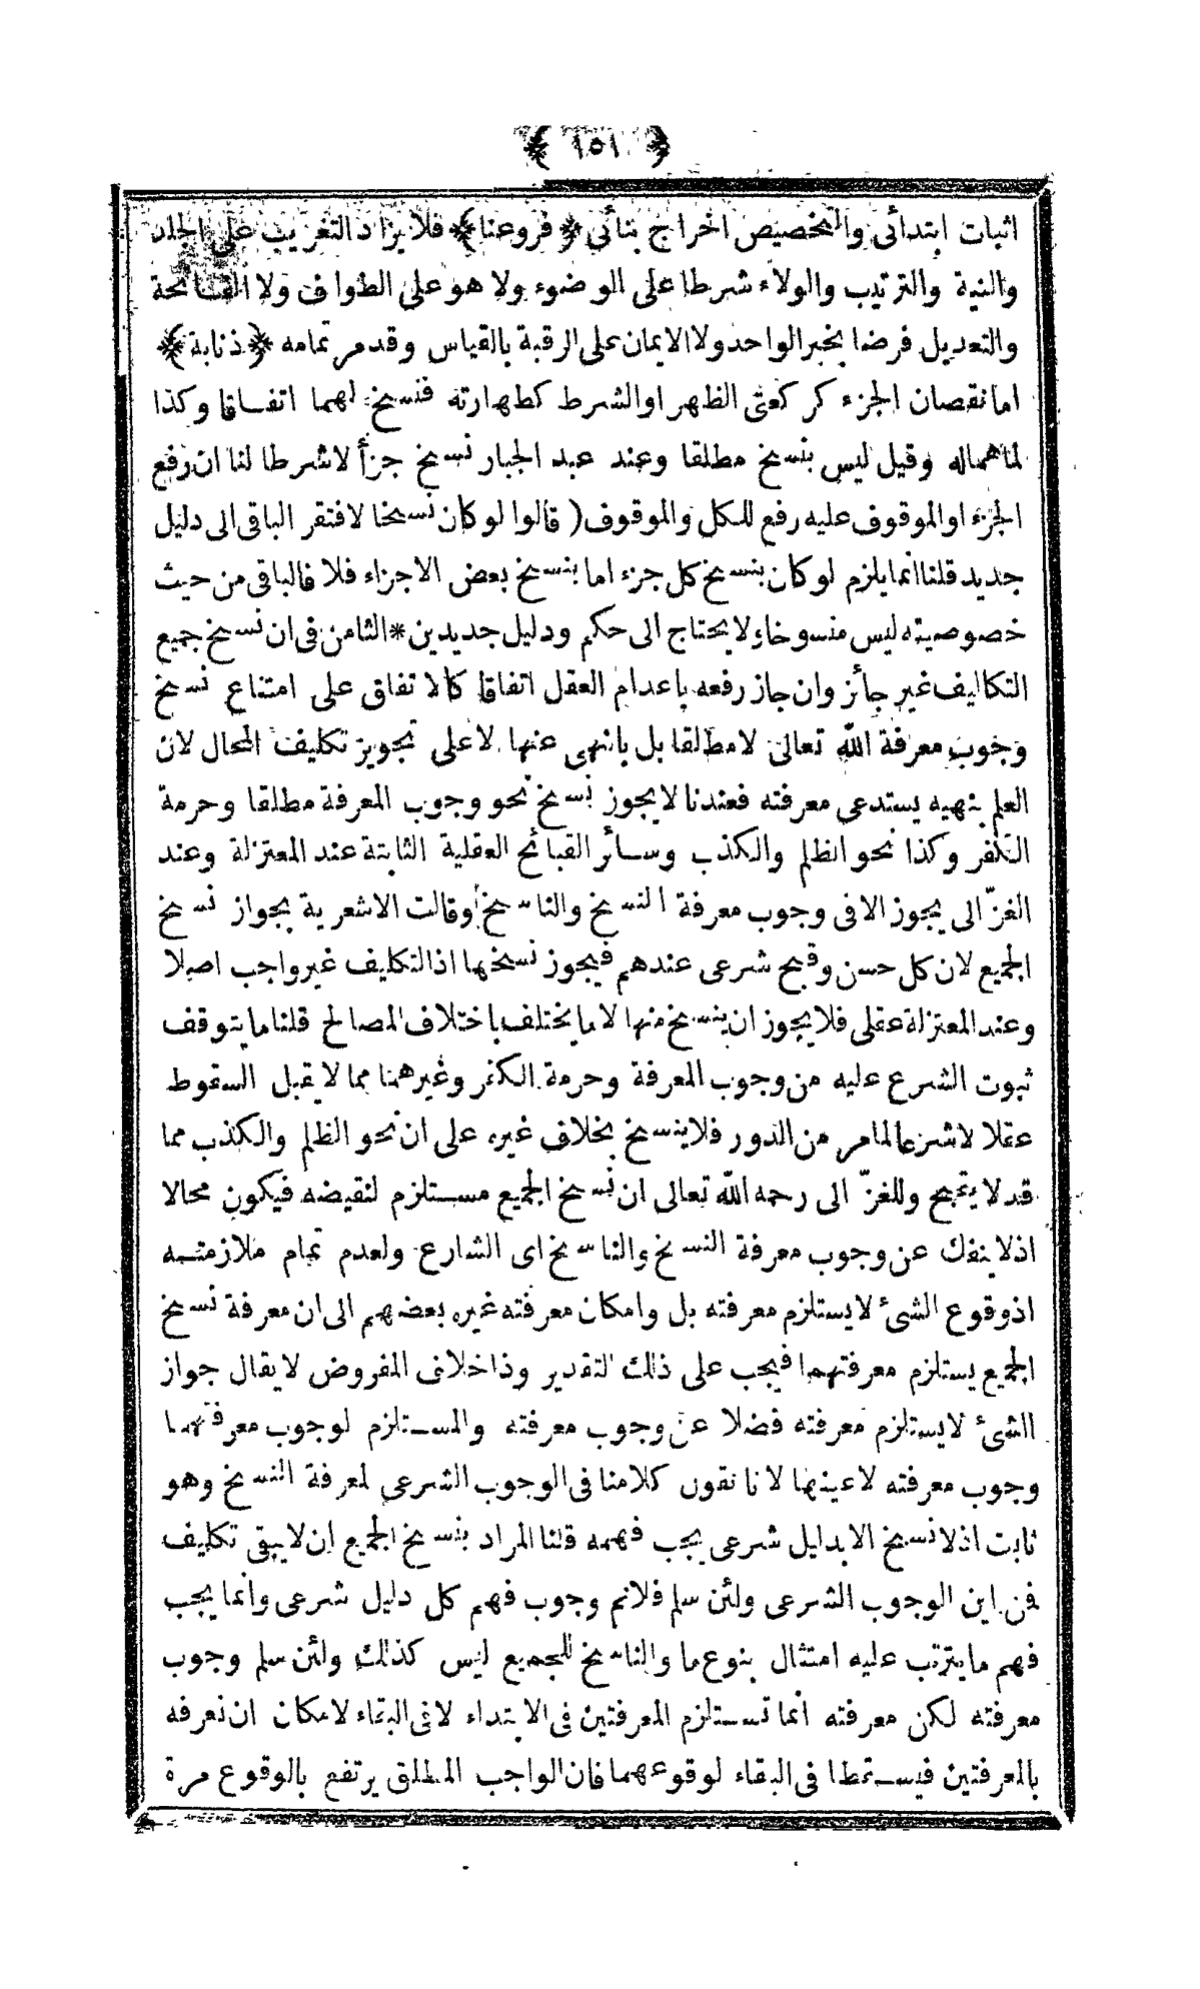 ﴿ ١٥١ ﴾
اثبات ابتدائى والتخصيص اخراج بنائى ﴿ فروعنا ﴾ فلا يزاد التغريب على الجلد
والنية والترتيب والولاء شرطا على الوضوء ولا هو على الطواف ولا الفاتحة
والتعديل فرضا بخبر الواحد ولا الايمان على الرقبة بالقياس وقد مر تمامه ﴿ ذنابة ﴾
اما نقصان الجزء كركعتى الظهر او الشرط كطهارته فنسخ لهما اتفاقا وكذا
لما هماله وقيل ليس بنسخ مطلقا وعند عبد الجبار نسخ جزأ لا شرطا لنا ان رفع
الجزء او الموقوف عليه رفع للكل والموقوف ( قالوا لو كان نسخا لافتقر الباقى الى دليل
جديد قلنا انما يلزم لو كان بنسخ كل جزء اما بنسخ بعض الاجزاء فلا فالباقى من حيث
خصوصيته ليس منسوخا ولا يحتاج الى حكم ودليل جديدين * الثامن فى ان نسخ جميع
التكاليف غير جائز وان جاز رفعه باعدام العقل اتفاقا كالاتفاق على امتناع نسخ
وجوب معرفة الله تعالى لا مطلقا بل بالنهى عنها لا على تجويز تكليف المحال لان
العلم بنهيه يستدعى معرفته فعندنا لا يجوز نسخ نحو وجوب المعرفة مطلقا وحرمة
الكفر وكذا نحو الظلم والكذب وسائر القبائح العقلية الثابتة عند المعتزلة وعند
الغزّالى يجوز الا فى وجوب معرفة النسخ والناسخ وقالت الاشعرية بجواز نسخ
الجميع لان كل حسن وقبيح شرعى عندهم فيجوز نسخها اذ التكليف غير واجب اصلا
وعند المعتزلة عقلى فلا يجوز ان ينسخ منها الا ما يختلف باختلاف المصالح قلنا ما يتوقف
ثبوت الشرع عليه من وجوب المعرفة وحرمة الكفر وغيرهما مما لا يقبل السقوط
عقلا لا شرعا لما مر من الدور فلا ينسخ بخلاف غيره على ان نحو الظلم والكذب مما
قد لا يقبح وللغزّالى رحمه الله تعالى ان نسخ الجميع مستلزم لنقيضه فيكون محالا
اذ لا ينفك عن وجوب معرفة النسخ والناسخ اى الشارع ولعدم تمام ملازمته
اذ وقوع الشئ لا يستلزم معرفته بل وامكان معرفته غيره بعضهم الى ان معرفة نسخ
الجميع يستلزم معرفتهما فيجب على ذلك التقدير وذا خلاف المفروض لا يقال جواز
الشئ لا يستلزم معرفته فضلا عن وجوب معرفته والمستلزم لوجوب معرفتهما
وجوب معرفته لا عينها لانا نقول كلامنا فى الوجوب الشرعى لمعرفة النسخ وهو
ثابت اذ لا نسخ الا بدليل شرعى يجب فهمه قلنا المراد بنسخ الجميع ان لا يبقى تكليف
فمن اين الوجوب الشرعى ولئن سلم فلانم وجوب فهم كل دليل شرعى وانما يجب
فهم ما يترتب عليه امتثال بنوع ما والناسخ للجميع ليس كذلك ولئن سلم وجوب
معرفته لكن معرفته انما تستلزم المعرفتين فى الابتداء لا فى البقاء لامكان ان نعرفه
بالمعرفتين فيسقطا فى البقاء لوقوعهما فان الواجب المطلق يرتفع بالوقوع مرة